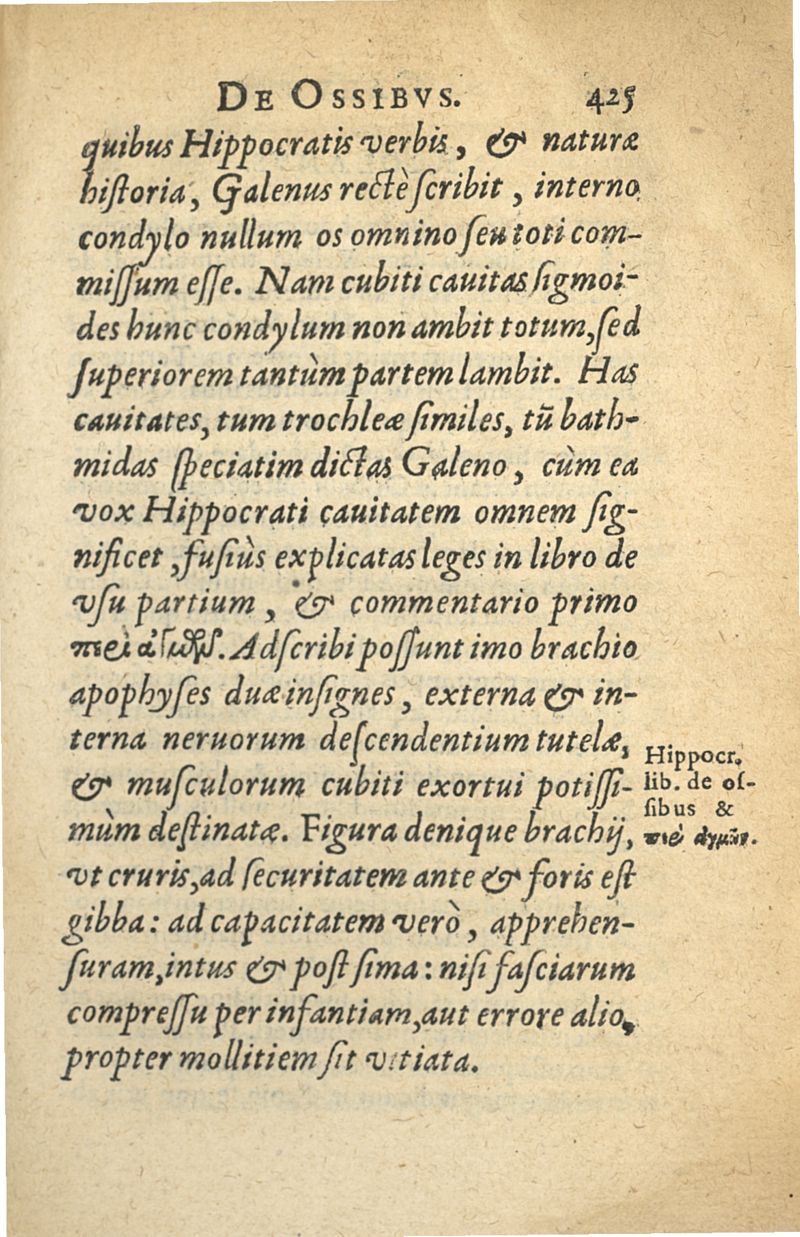 DE OSSIBVS. 425
quibus Hippocratis verbis, & naturæ
historia, Galenus rectè scribit, interno
condylo nullum os omnino seu toti com-
missum esse. Nam cubiti cauitas sigmoi-
des hunc condylum non ambit totum, sed
superiorem tantùm partem lambit. Has
cauitates, tum trochleæ similes, tū bath-
midas speciatim dictas Galeno, cùm ea
vox Hippocrati cauitatem omnem sig-
nificet, fusiùs explicatas leges in libro de
vsu partium, & commentario primo
περὶ ἀγμῶν. Adscribi possunt imo brachio
apophyses duæ insignes, externa & in-
terna neruorum descendentium tutelæ,
& musculorum cubiti exortui potissi-
mùm destinatæ. Figura denique brachij,
vt cruris, ad securitatem ante & foris est
gibba: ad capacitatem verò, apprehen-
suram, intus & post sima: nisi fasciarum
compressu per infantiam, aut errore alio,
propter mollitiem sit vitiata.
Hippocr.
lib. de os-
sibus &
περὶ ἀγμῶν.